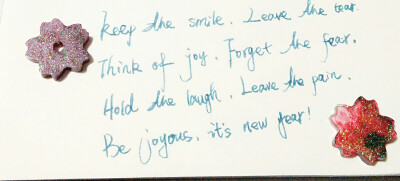 Keep the smile. Leave the tear.
Think of joy. Forget the fear.
Hold the laugh. Leave the pain.
Be joyous. it's new year!